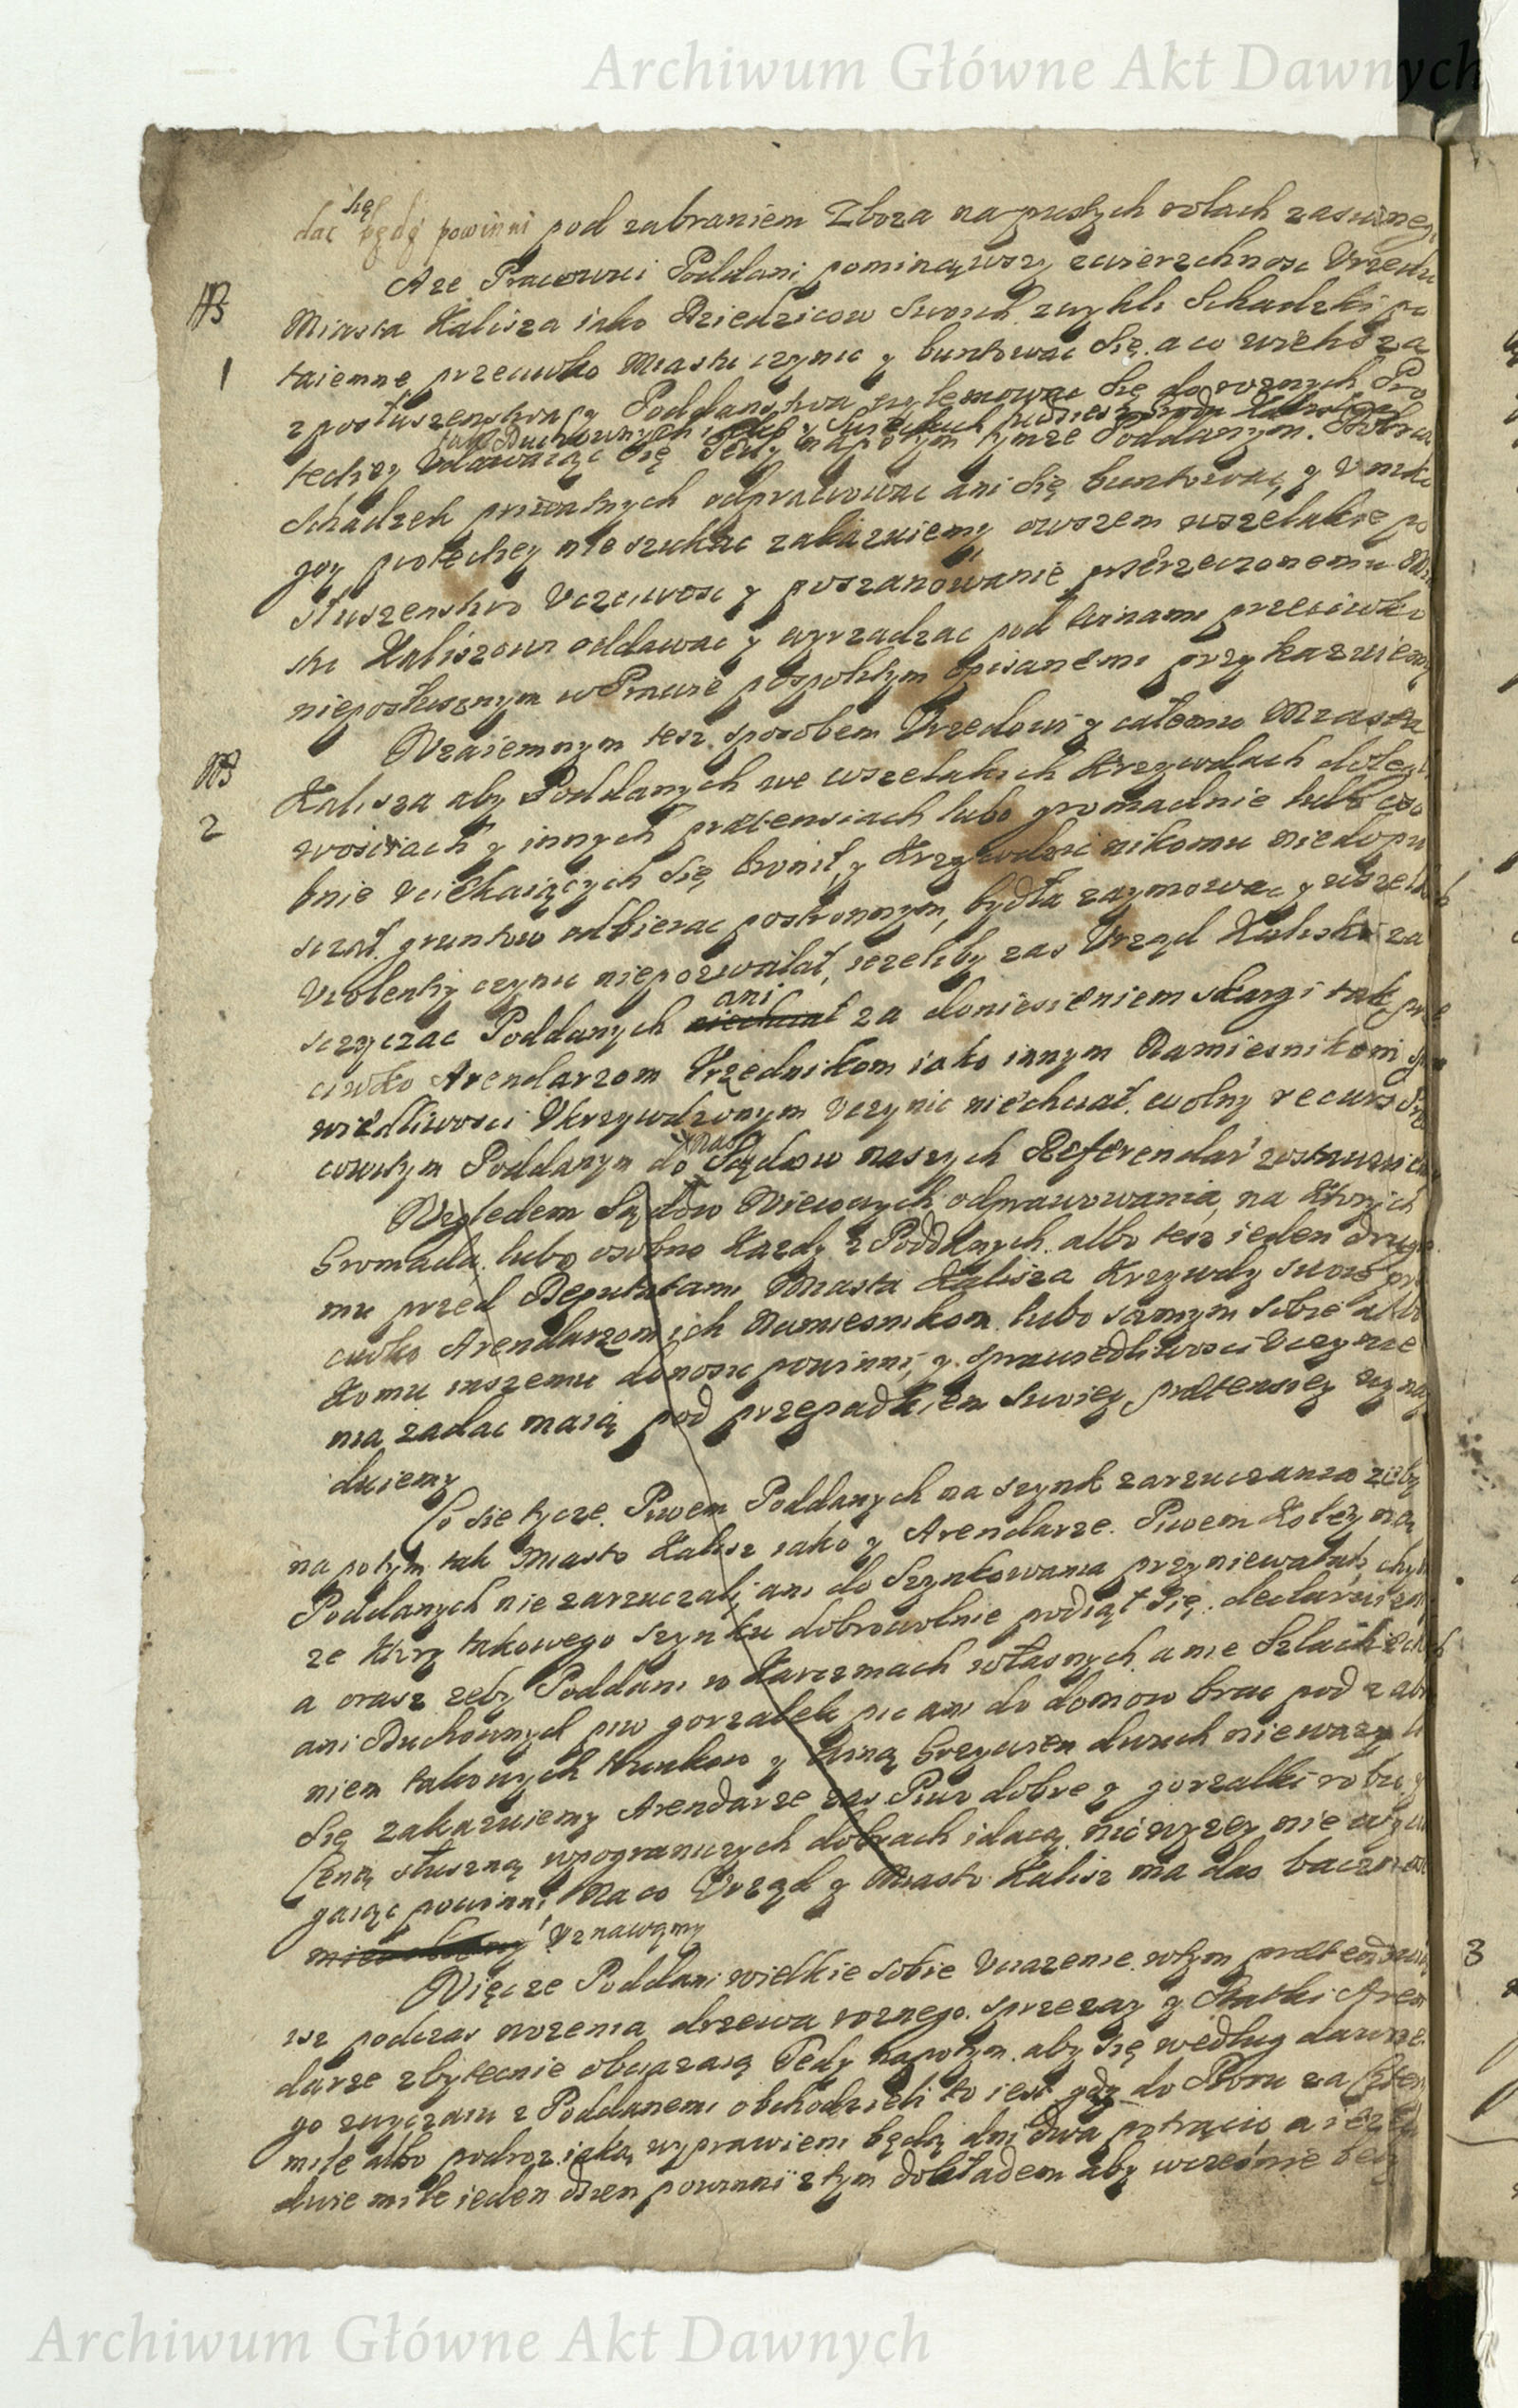 Archiwum Główne Akt Dawnych
się
dac będą powinni pod zabraniem Zboza na pustych rolach zasianego
NB
Aze Pracowici Poddani pominąwszy zwierzchnosc Vrzedu
Miasta Kalisza iako Dziedzicow Swoich zwykli Schadzki po
1
taiemne przeciwko Miastu czynic y buntowac się. a co wieksza
z posłuszenstwa y Poddanstwa wyłamowac się do roznych Pro
tech y Vdawaiąc się Tedy napotym tymze Poddanym.
Schadzek prywatnych odprawowac ani się buntowac, y V
goy protechcy nie szukac zakazuiemy owszem wszelakie po
słuszenstwo Vczciwosc y poszanowanie przerzeczonemu Mia
stu Kaliszowi oddawac y wyrzadzac pod winami przeciwko
nieposłusznym w Prawie pospolitym opisanemi przykazuiemy
NB
Wzaiemnym tesz sposobem Vrzedowi y całemu Miastu
2
Kalisza aby Poddanych we wszelakich Krzywdach dolegli
wosciach y innych praetensiach lubo gromadnie lubo oso
bnie Vciekaiących się bronił, y Krzywdzic nikomu niedopu
sczał. gruntow odbierac postronnym, bydła zaymowac y wszelkich
Violentiy czynic niepozwalał, iezeliby zas Vrząd Kaliski za
ani
sczyczac Poddanych niechciał za doniesieniem skargi tak prze
ciwko Arendarzom Vrzednikom iako innym Namiesnikom spra
wiedliwosci Vkrzywdzonym Vczynic niechciał. wolny recurs Pra
nas
cowitym Poddanym do Sądow naszych Referendar zostawuiem
Względem Sądow Wiecowych odprawowania, na Ktorych
Gromada. lubo osobno Kazdy z Poddanych. albo tesz ieden drugie
mu przed Deputatami Miasta Kalisza Krzywdy swoie prze
ciwko Arendarzom ich Namiesnikom. lubo samym sobie lubo
Komu inszemu donosic powinni, y. sprawiedliwosci Vczynie
nia ządac maią pod przepadkiem Swoiey praetensiey wynay
duiemy
Co się tycze. Piwem Poddanych na szynk zarzuczania żeby
na potym tak Miasto Kalisz iako y Arendarze. Piwem Koleyną
Poddanych nie zarzuczali, ani do Szynkowania przyniewalali, chyb
ze Ktory takowego szynku dobrowolnie podiął się. declaruiemy
a orasz zeby Poddani w Karczmach własnych. a nie Szlacheckich
ani Duchownych piw gorzałek pic ani do domow brac pod zabra
niem takowych trunkow y winą Grzywien dwuch niewazyli
Się zakazuiemy Arendarze zas Piwo dobre y gorzałki robic y
Ceną słuszną wpogranicznych dobrach idącą nic wyzey nie wycią
gaiąc powinni, Na co Vrząd y Miasto Kalisz ma dac bacznosc
Vznawamy
Więc ze Poddani wielkie sobie Vciązenie. wtym praetenduią
isz podczas wozenia drzewa roznego. sprzezay y Statki Aren
darze zbytecnie obciązaią Tedy napotym. aby się według dawne
go zwyczaiu z Poddanemi obchodzieli to iest gdy do Boru za Cztery
mile albo podroz iaką wyprawieni będą dni dwa potrącic a iezeli
dwie mile ieden dzien powinni z tym dokładem aby wczesnie bed
3
Archiwum Główne Akt Dawnych